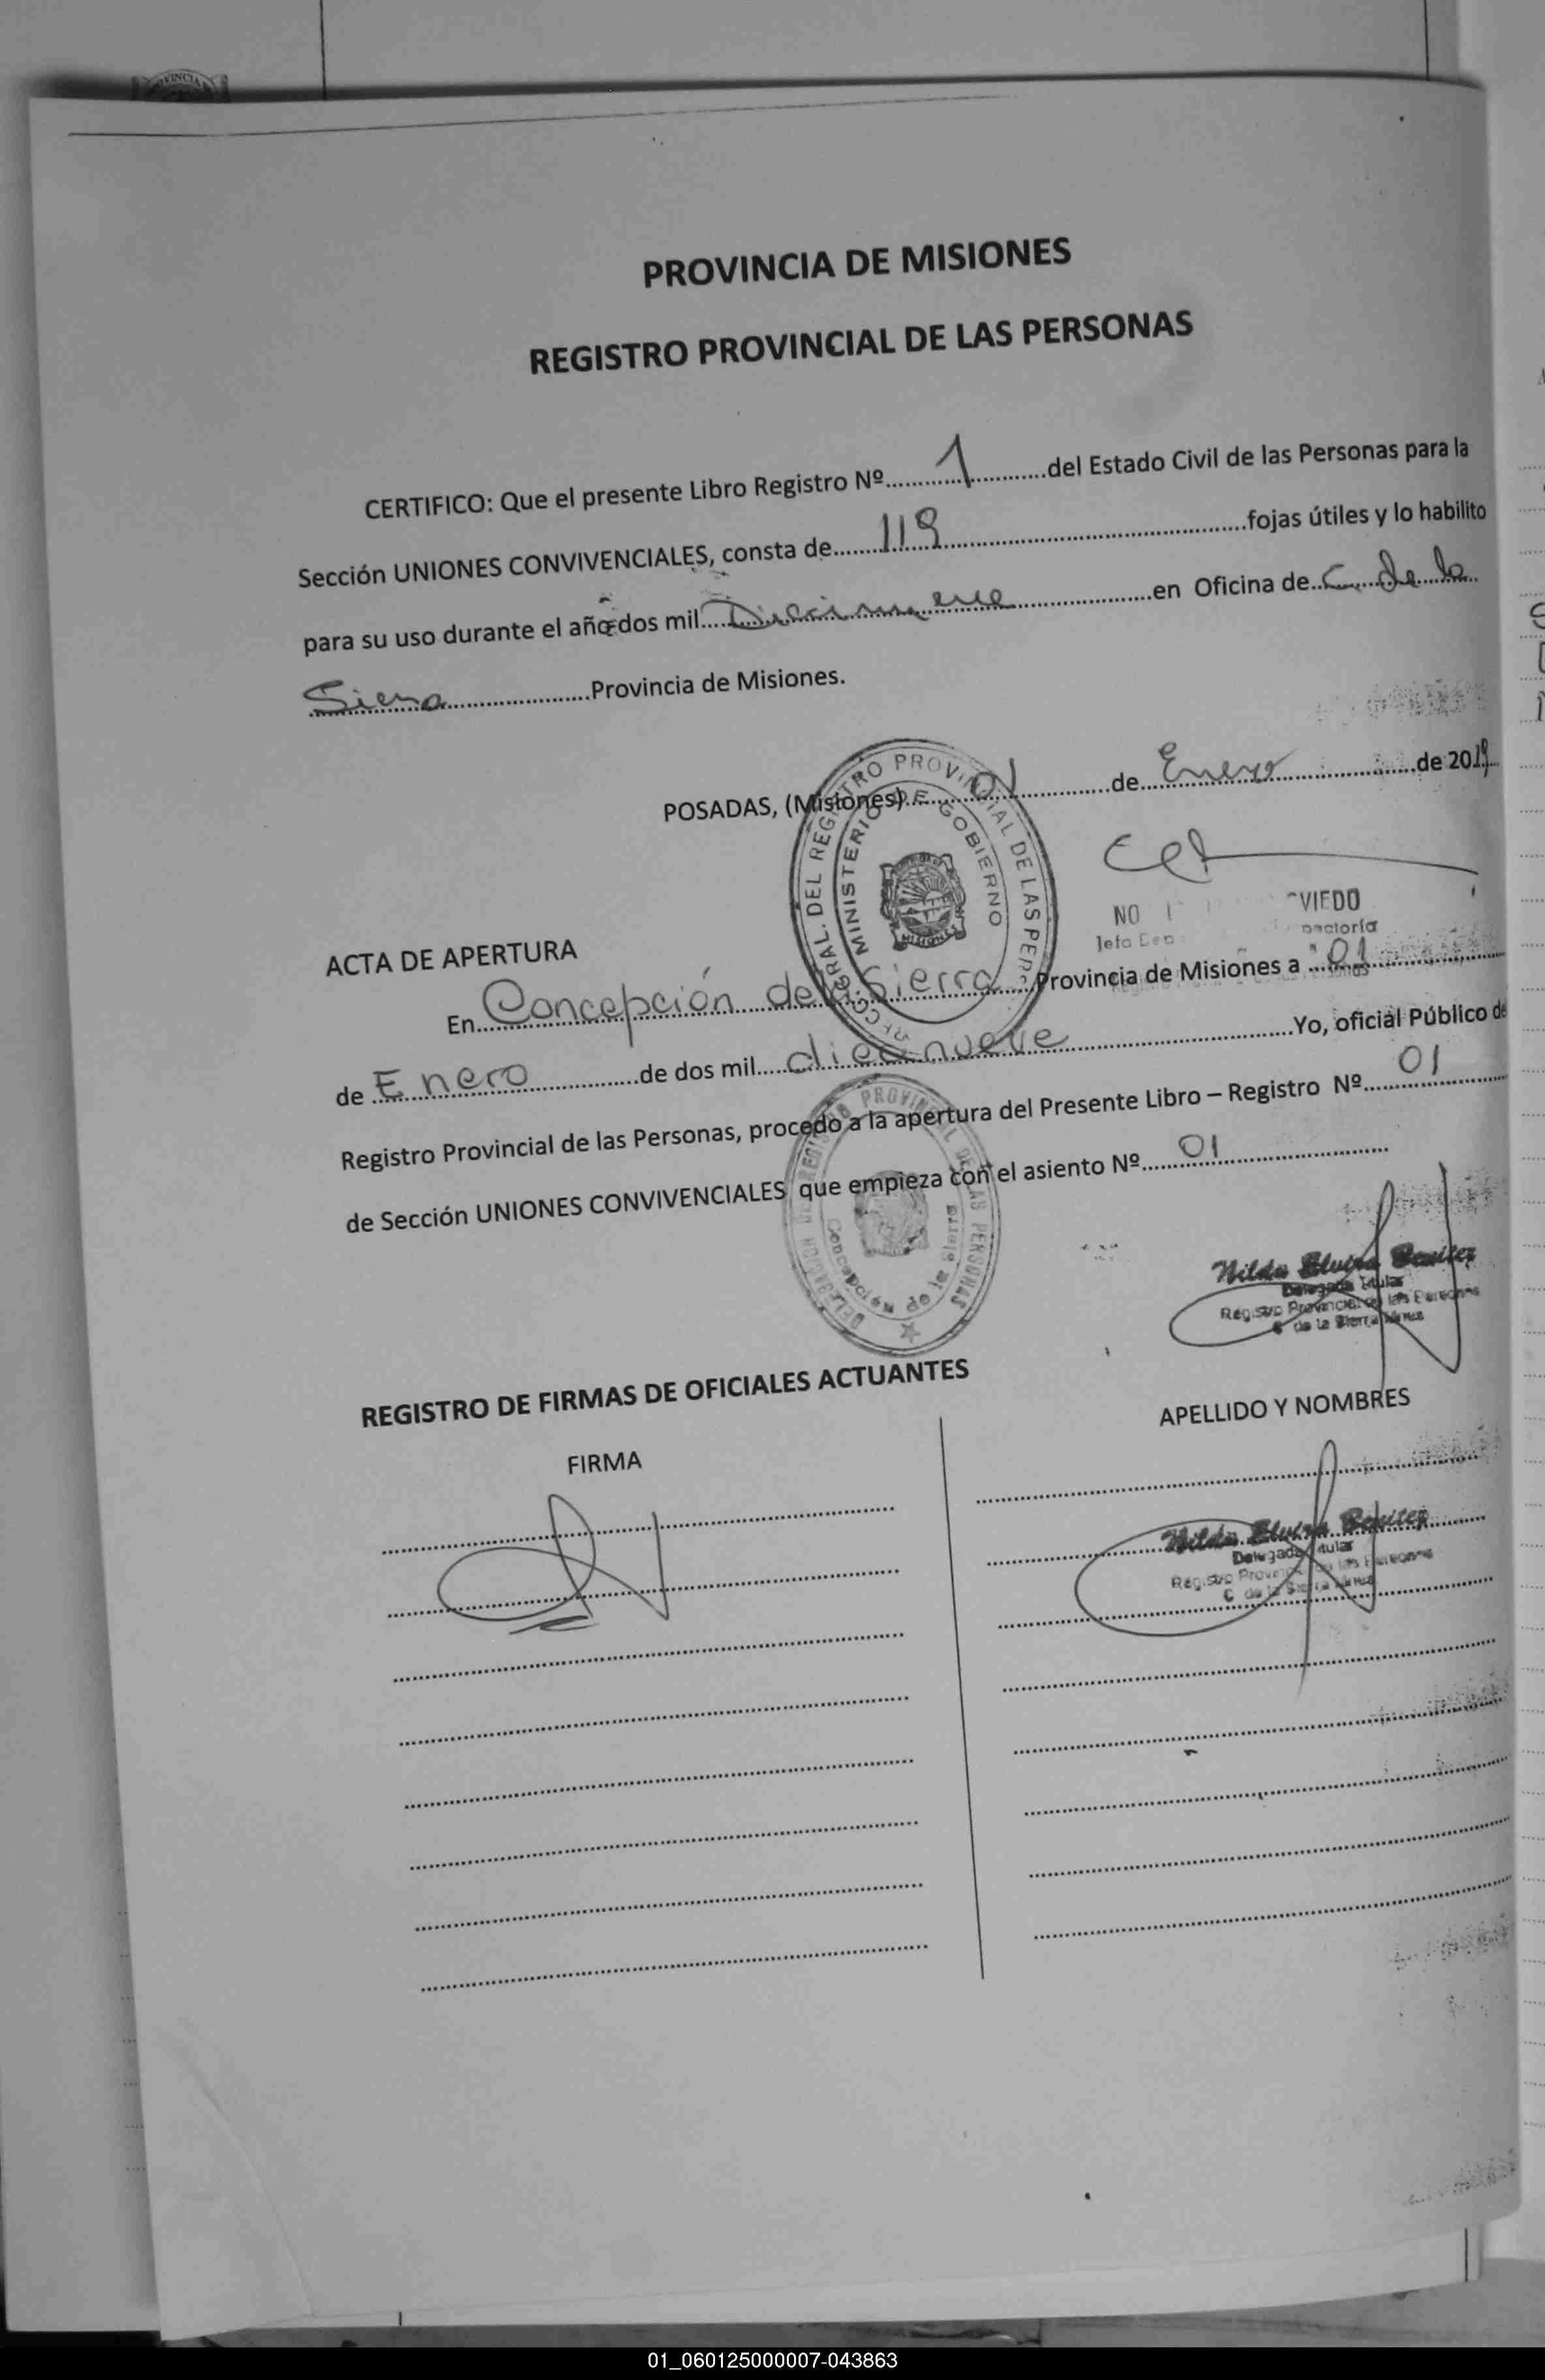 PROVINCIA DE MISIONES
REGISTRO PROVINCIAL DE LAS PERSONAS
CERTIFICO: Que el presente Libro Registro Nº 1 del Estado Civil de las Personas para la
Sección UNIONES CONVIVENCIALES, consta de 119 fojas útiles y lo habilito
para su uso durante el año dos mil Diecinueve en Oficina de C. de la
Sierra Provincia de Misiones.
POSADAS, (Misiones) 01 de Enero de 2019
MINISTERIO DE GOBIERNO
MISIONES
VIEDO
ACTA DE APERTURA
En Concepción de la Sierra Provincia de Misiones a 01
de Enero de dos mil diecinueve Yo, oficial Público de
Registro Provincial de las Personas, procedo a la apertura del Presente Libro – Registro Nº 01
de Sección UNIONES CONVIVENCIALES que empieza con el asiento Nº 01
DELEGACION DE REGISTRO PROVINCIAL DE LAS PERSONAS
Concepción de la Sierra
Nilda Elvira Benitez
Delegada Titular
Registro Provincial de las Personas
C de la Sierra Mnes
REGISTRO DE FIRMAS DE OFICIALES ACTUANTES
FIRMA
APELLIDO Y NOMBRES
Nilda Elvira Benitez
Delegada Titular
Registro Provincial de las Personas
C de la Sierra Mnes
01_060125000007-043863